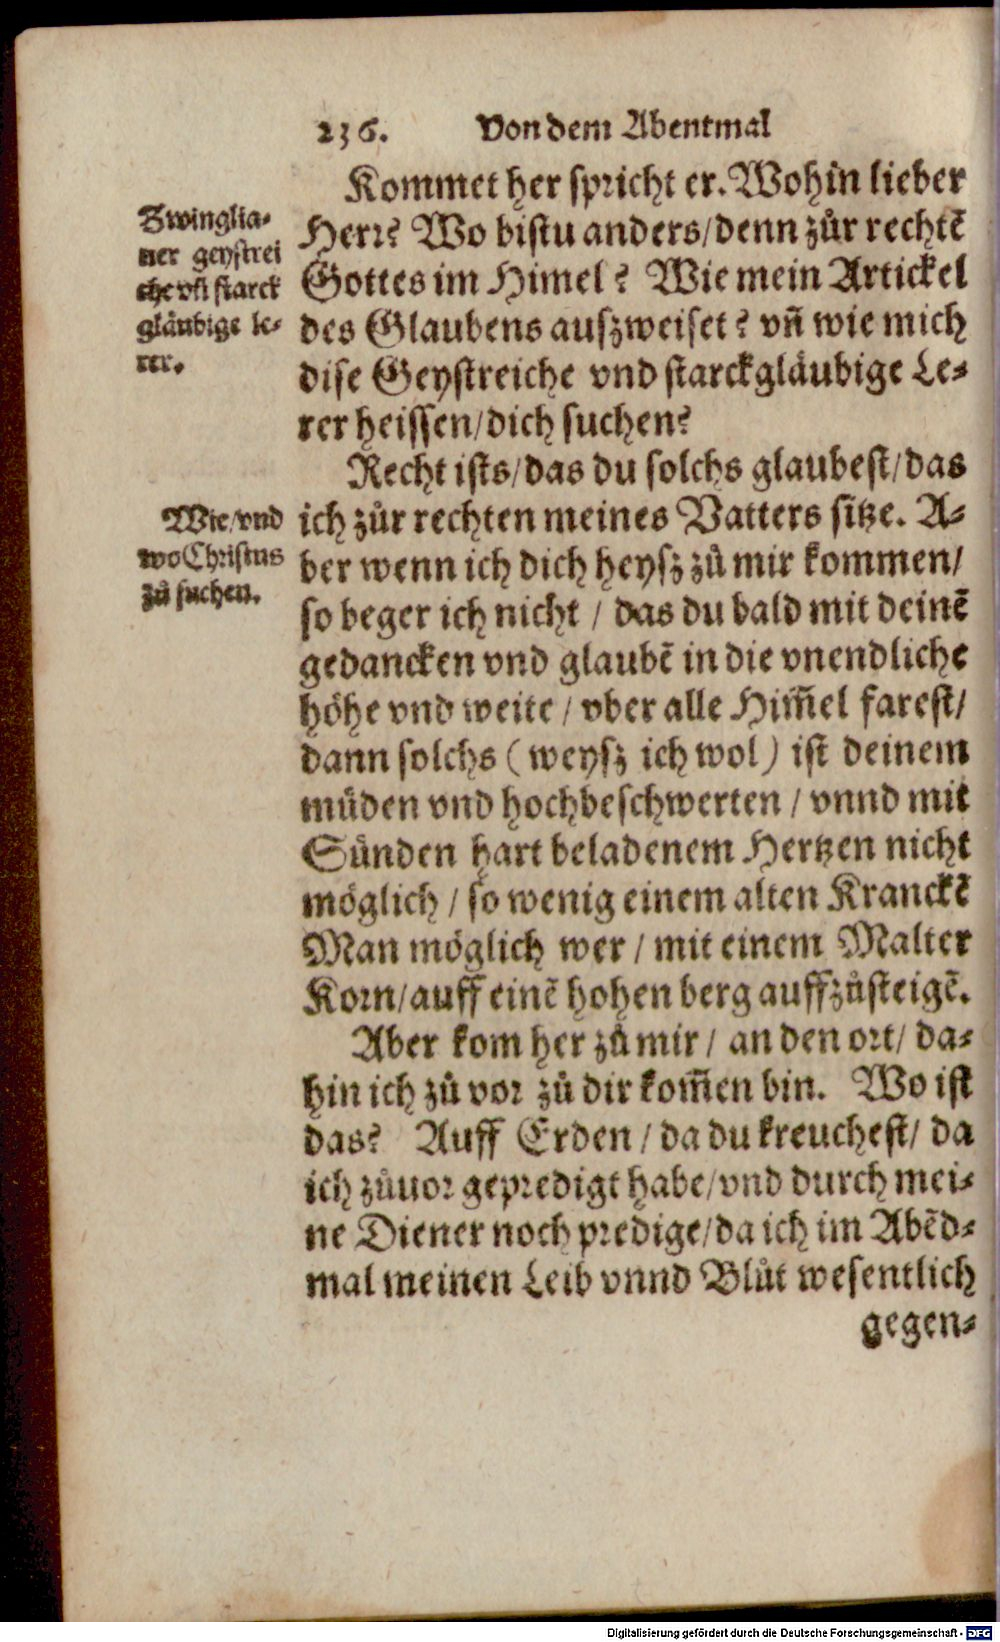 236. Von dem Abentmal
Kommet her spricht er. Wohin lieber
Herr? Wo bistu anders/denn zůr rechtẽ
Gottes im Himel? Wie mein Artickel
des Glaubens auszweiset? vñ wie mich
dise Geystreiche vnd starckgläubige Le-
rer heissen/dich suchen?
Zwinglia-
ner geystrei
che vñ starck
gläubige le-
rer.
Recht ists/das du solchs glaubest/das
ich zůr rechten meines Vatters sitze. A-
ber wenn ich dich heysz zů mir kommen/
so beger ich nicht / das du bald mit deinẽ
gedancken vnd glaubẽ in die vnendliche
höhe vnd weite / vber alle Him̃el farest/
dann solchs (weysz ich wol) ist deinem
müden vnd hochbeschwerten / vnnd mit
Sünden hart beladenem Hertzen nicht
möglich / so wenig einem alten Kranckẽ
Man möglich wer / mit einem Malter
Korn/auff einẽ hohen berg auffzůsteigẽ.
Wie/vnd
wo Christus
zů suchen.
Aber kom her zů mir / an den ort/ da-
hin ich zů vor zů dir kom̃en bin. Wo ist
das? Auff Erden / da du kreuchest/ da
ich zůuor gepredigt habe/vnd durch mei-
ne Diener noch predige/da ich im Abẽd-
mal meinen Leib vnnd Blůt wesentlich
gegen-
Digitalisierung gefördert durch die Deutsche Forschungsgemeinschaft - DFG